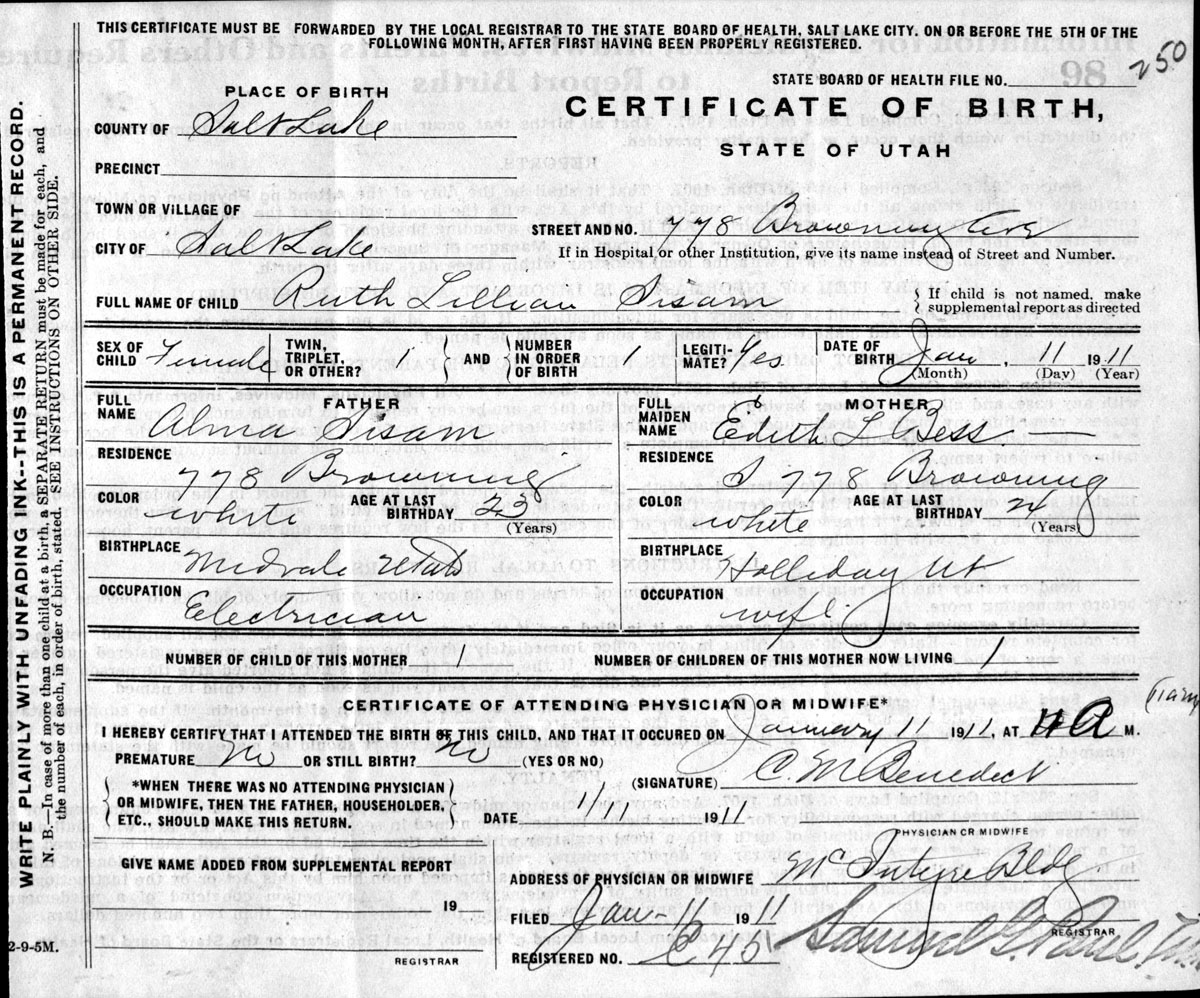 THIS CERTIFICATE MUST BE FORWARDED BY THE LOCAL REGISTRAR TO THE STATE BOARD OF HEALTH, SALT LAKE CITY, ON OR BEFORE THE 5TH OF THE
FOLLOWING MONTH, AFTER FIRST HAVING BEEN PROPERLY REGISTERED.
250
STATE BOARD OF HEALTH FILE NO.
PLACE OF BIRTH
CERTIFICATE OF BIRTH,
STATE OF UTAH
COUNTY OF Salt Lake
PRECINCT
TOWN OR VILLAGE OF
STREET AND NO. 778 Browning Ave
CITY OF Salt Lake
If in Hospital or other Institution, give its name instead of Street and Number.
FULL NAME OF CHILD Ruth Lillian Sisam
If child is not named, make
supplemental report as directed
SEX OF CHILD Female
TWIN, TRIPLET, OR OTHER? 1 AND NUMBER IN ORDER OF BIRTH
LEGITIMATE? Yes
DATE OF BIRTH Jan 11 1911
(Month) (Day) (Year)
FATHER
FULL NAME Alma Sisam
RESIDENCE 778 Browning
COLOR White AGE AT LAST BIRTHDAY 23 (Years)
BIRTHPLACE Midvale Utah
OCCUPATION Electrician
MOTHER
FULL MAIDEN NAME Edith L Bess
RESIDENCE 778 Browning
COLOR White AGE AT LAST BIRTHDAY (Years)
BIRTHPLACE Holliday Ut
OCCUPATION wife
NUMBER OF CHILD OF THIS MOTHER 1 NUMBER OF CHILDREN OF THIS MOTHER NOW LIVING 1
CERTIFICATE OF ATTENDING PHYSICIAN OR MIDWIFE*
I HEREBY CERTIFY THAT I ATTENDED THE BIRTH OF THIS CHILD, AND THAT IT OCCURED ON January 11 1911, AT A M.
PREMATURE No OR STILL BIRTH? No (YES OR NO)
(SIGNATURE) C. M. Benedict
*WHEN THERE WAS NO ATTENDING PHYSICIAN
OR MIDWIFE, THEN THE FATHER, HOUSEHOLDER,
ETC., SHOULD MAKE THIS RETURN.
DATE 1/11 1911
PHYSICIAN OR MIDWIFE
GIVE NAME ADDED FROM SUPPLEMENTAL REPORT
19
REGISTRAR
ADDRESS OF PHYSICIAN OR MIDWIFE McIntyre Bldg
FILED Jan - 11 1911
REGISTERED NO. 45
Samuel G. Paul
REGISTRAR
2-9-5M.
WRITE PLAINLY WITH UNFADING INK--THIS IS A PERMANENT RECORD.
N. B.—In case of more than one child at a birth, a SEPARATE RETURN must be made for each, and
the number of each, in order of birth, stated. SEE INSTRUCTIONS ON OTHER SIDE.